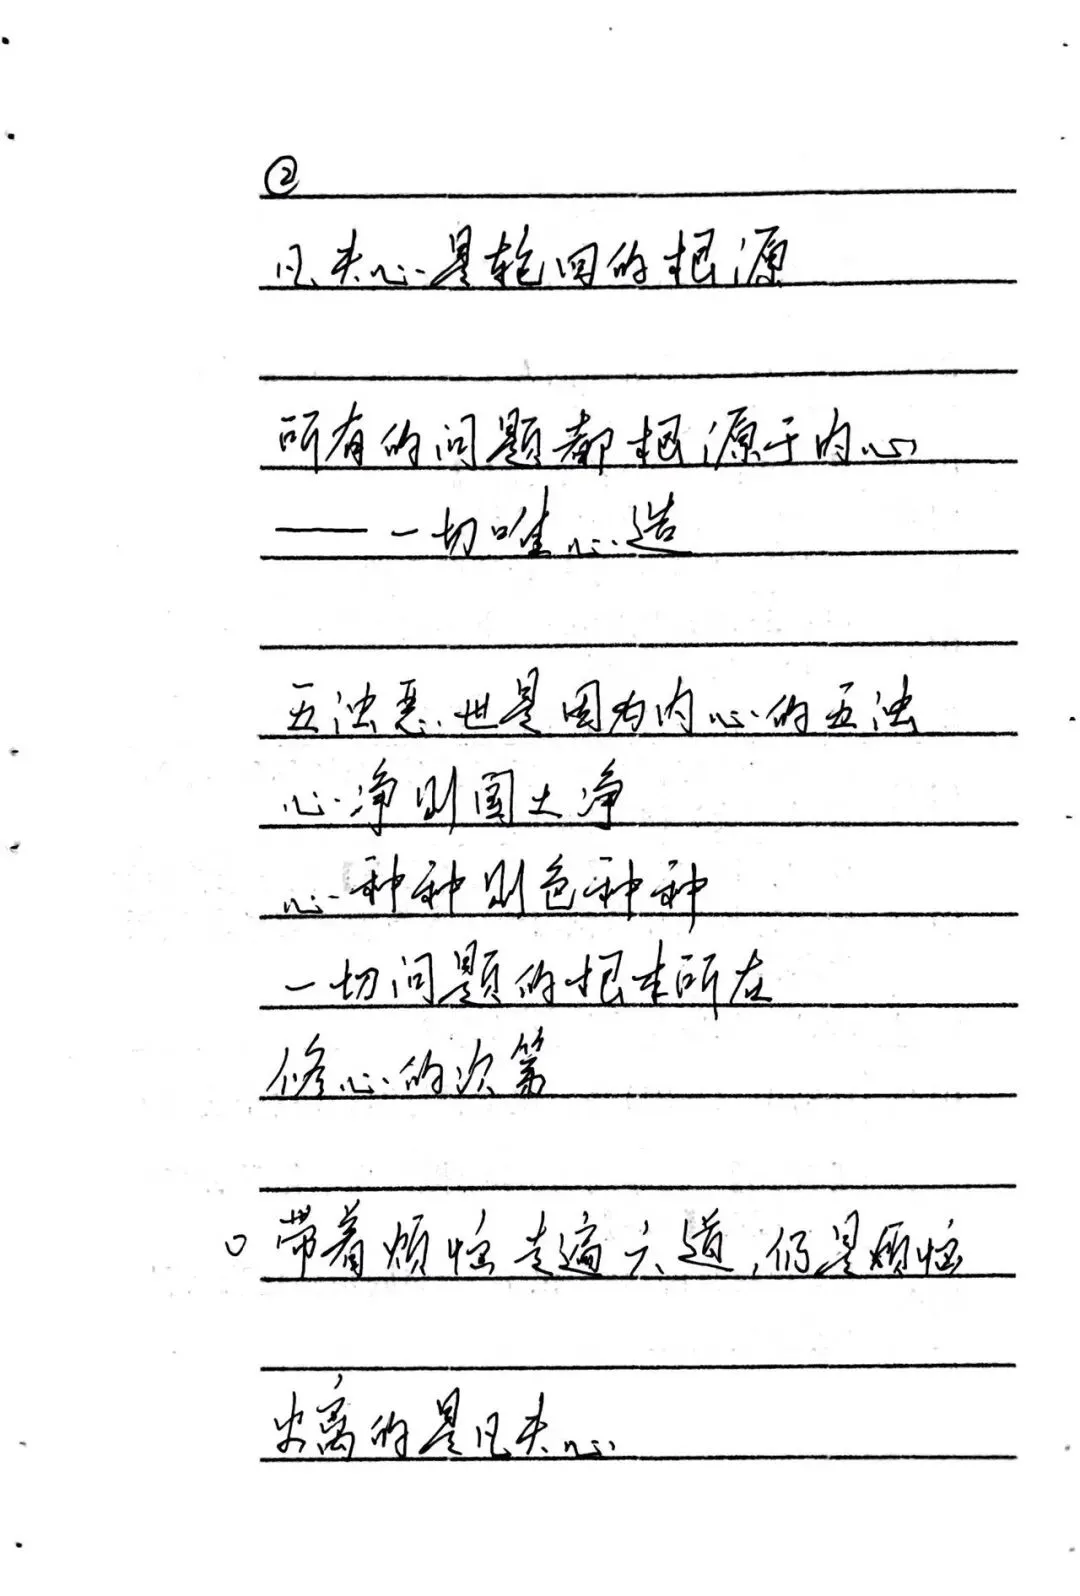 ②
凡夫心是轮回的根源
所有的问题都根源于内心
——一切唯心造
五浊恶世是因为内心的五浊
心净则国土净
心种种则色种种
一切问题的根本所在
修心的次第
○带着烦恼走遍六道，仍是烦恼
出离的是凡夫心